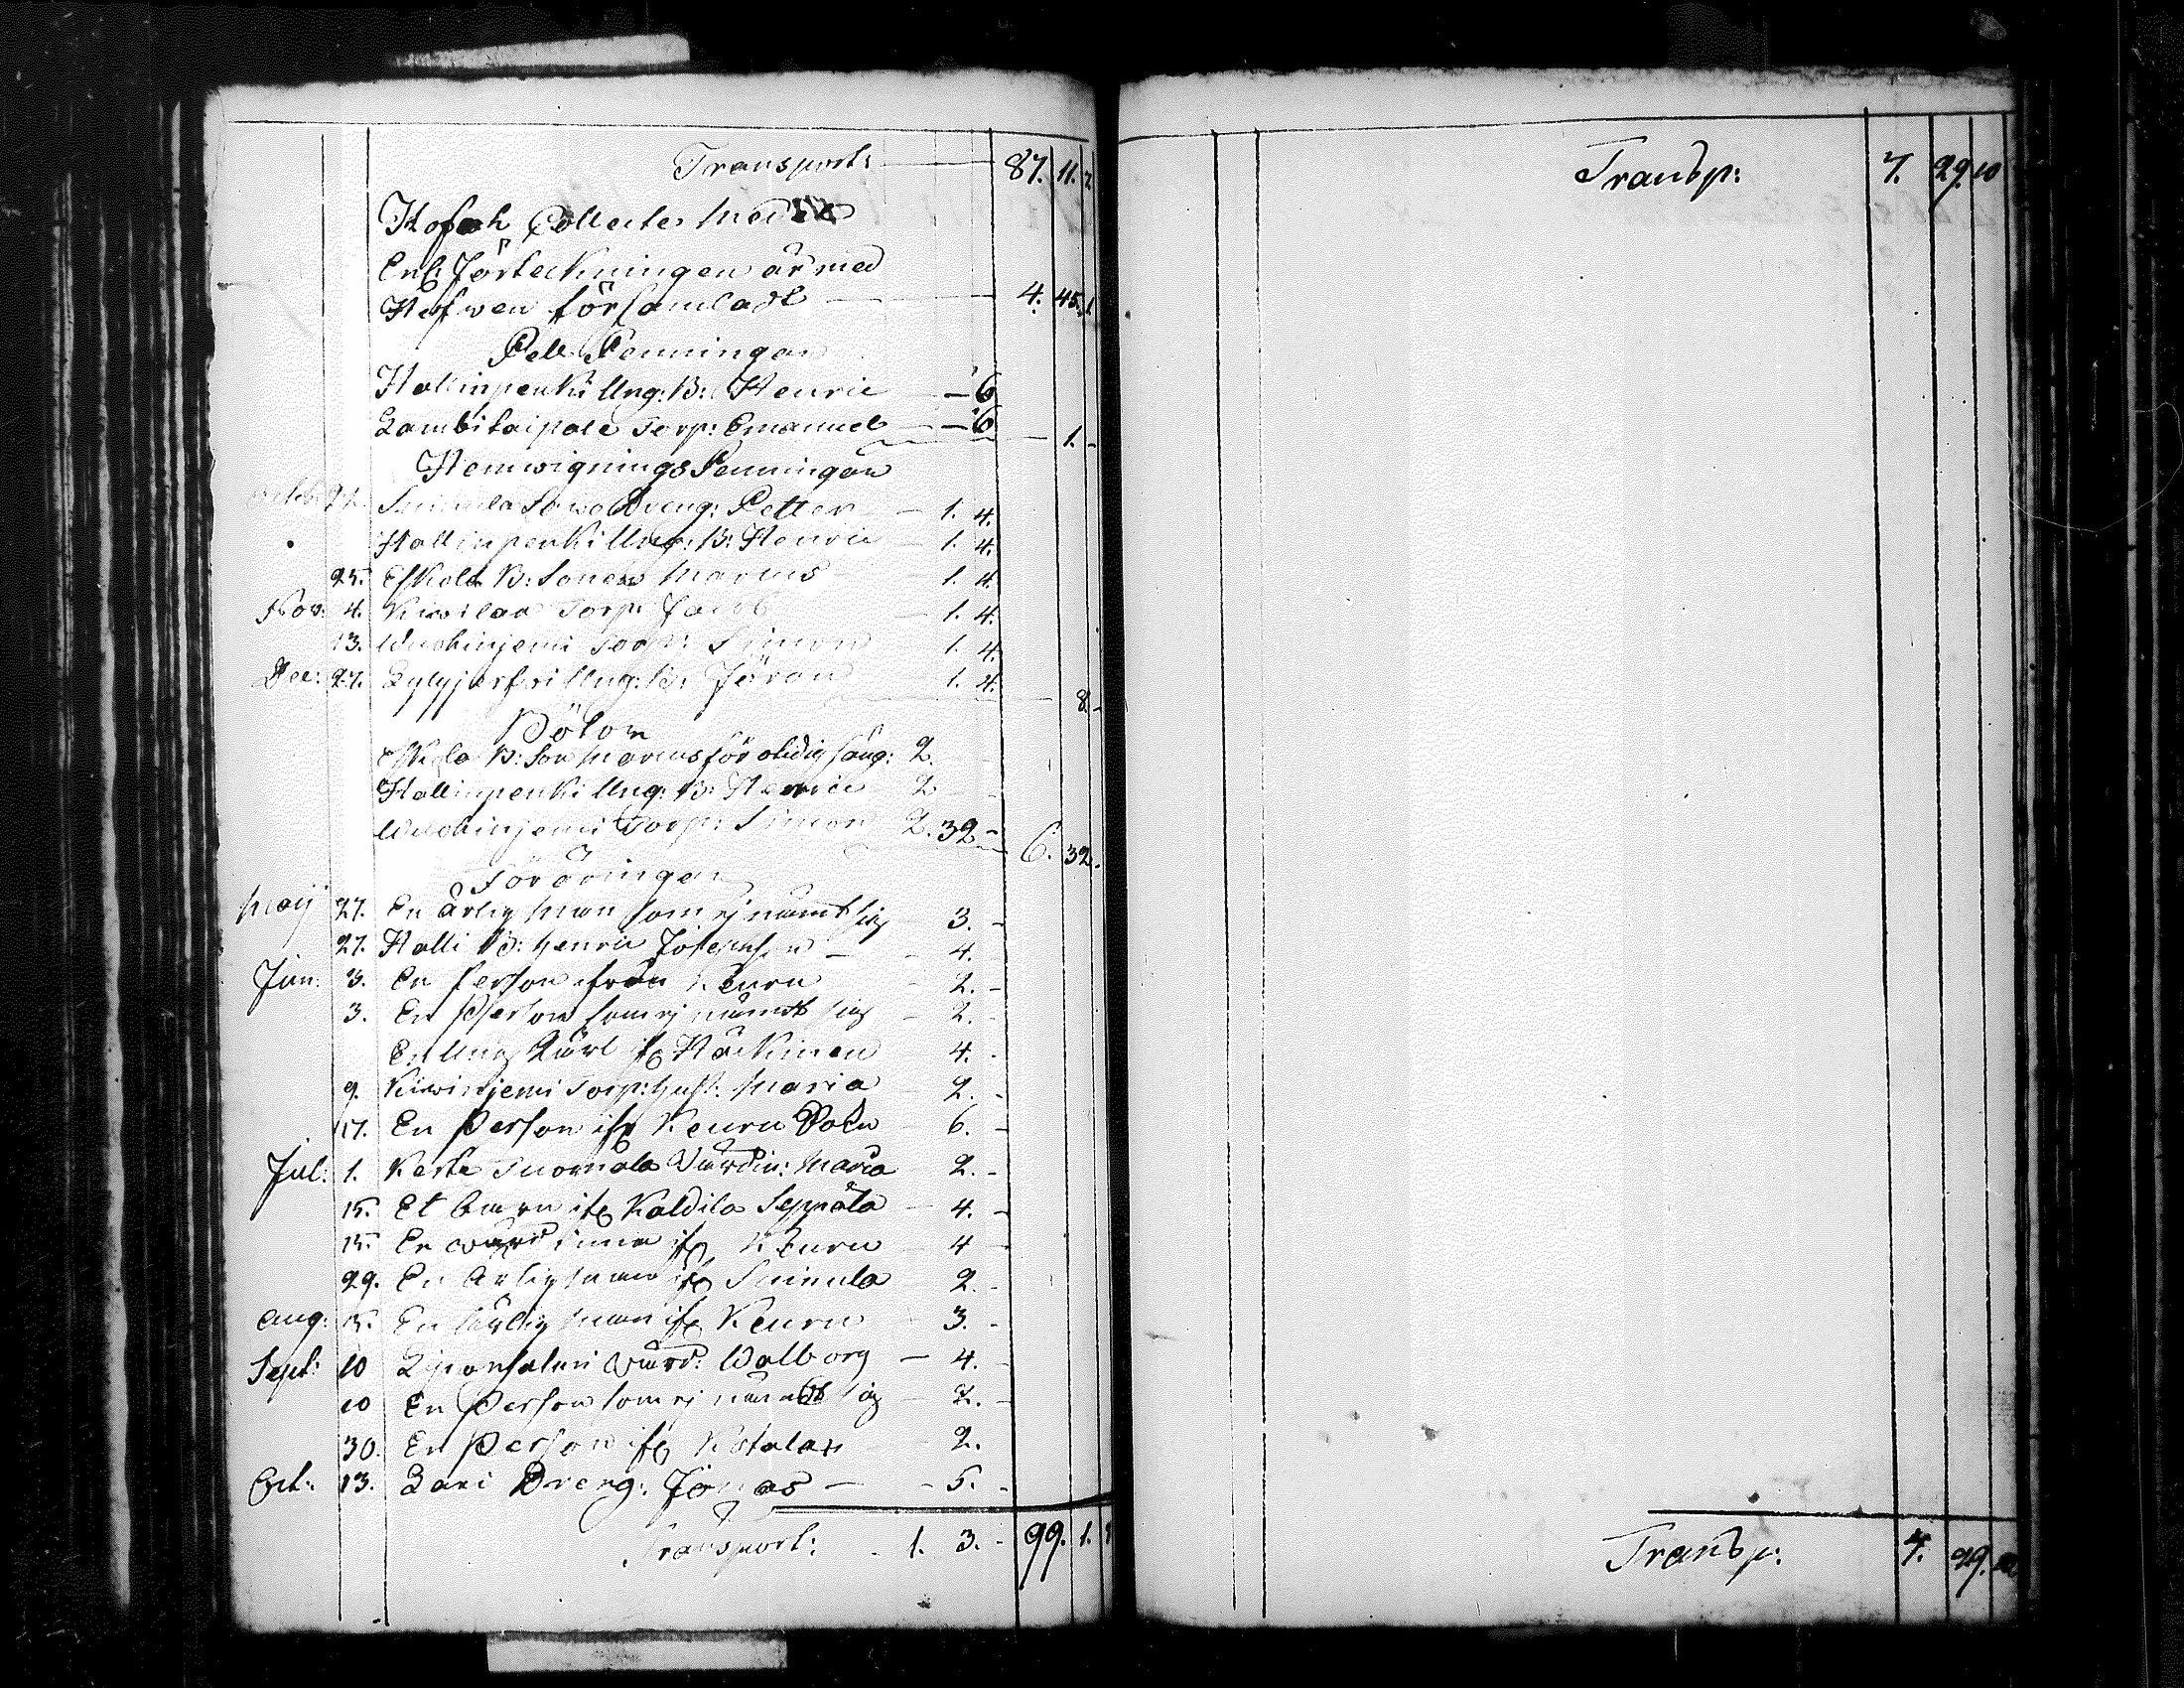 Transport: 87. 11. 2.
Hofeh Collecter med
Enl: Förteckningen är med
Hofwen församladt 4. 45. 1
Pell Penningar
Hallinpenki Ung: B: Henric 6
Lambitaipale Torp: Emanuel 6 1. -
Hemwignings Penningar
27. Suinula Dreng: Petter 1. 4.
Hallinpenki Ung: B: Henric 1. 4.
25. Eskola B: Sonen Marcus 1. 4.
Nov: 4. Kiwilax Torp: Jacob 1. 4.
13. Wuohinjemi Torp: Simon 1. 4.
Dec: 27. Lylyjerfwi Ung: B: Jöran 1. 4. 8. -
Böter
Eskola B: Son Marcus för otidig säng: 2.
Hallinpenki Ung: B: Henric 2
Wuohinjemi Torp: Simon 2. 32 - 6. 32.
Föräringar
Maij 27. En ärlig Man som ej nämt sig 3. -
27. Halli B: Henric 4.
Jun: 3. En Person ifrån Keuru 2. -
3. En Person som ej nämdt sig 2.
En Ung Karl ifr Häckinen 4.
9. Kiwinjemi Torp: Hust: Maria 2. -
17. En Person ifr Keuru 6. -
Jul: 1. Värdin: Maria 2. -
15. Et Barn ifr Kaldila Seppälä 4. -
15. En wärdinna ifr Keuru 4 -
29. En ärlig man ifr Suinula 2. -
Aug: En ärlig man ifr Keuru 3. -
Sept: 10 wärd: Walborg 4. -
10 En Person som ej nämdt sig 2. -
30. En Person ifr 2.
Oct: 13. Lari Dreng: Jonas 5. -
Transport: 1. 3. - 99. 1. 1
Transp: 7. 29. 10
Transp: 7. 29. 10